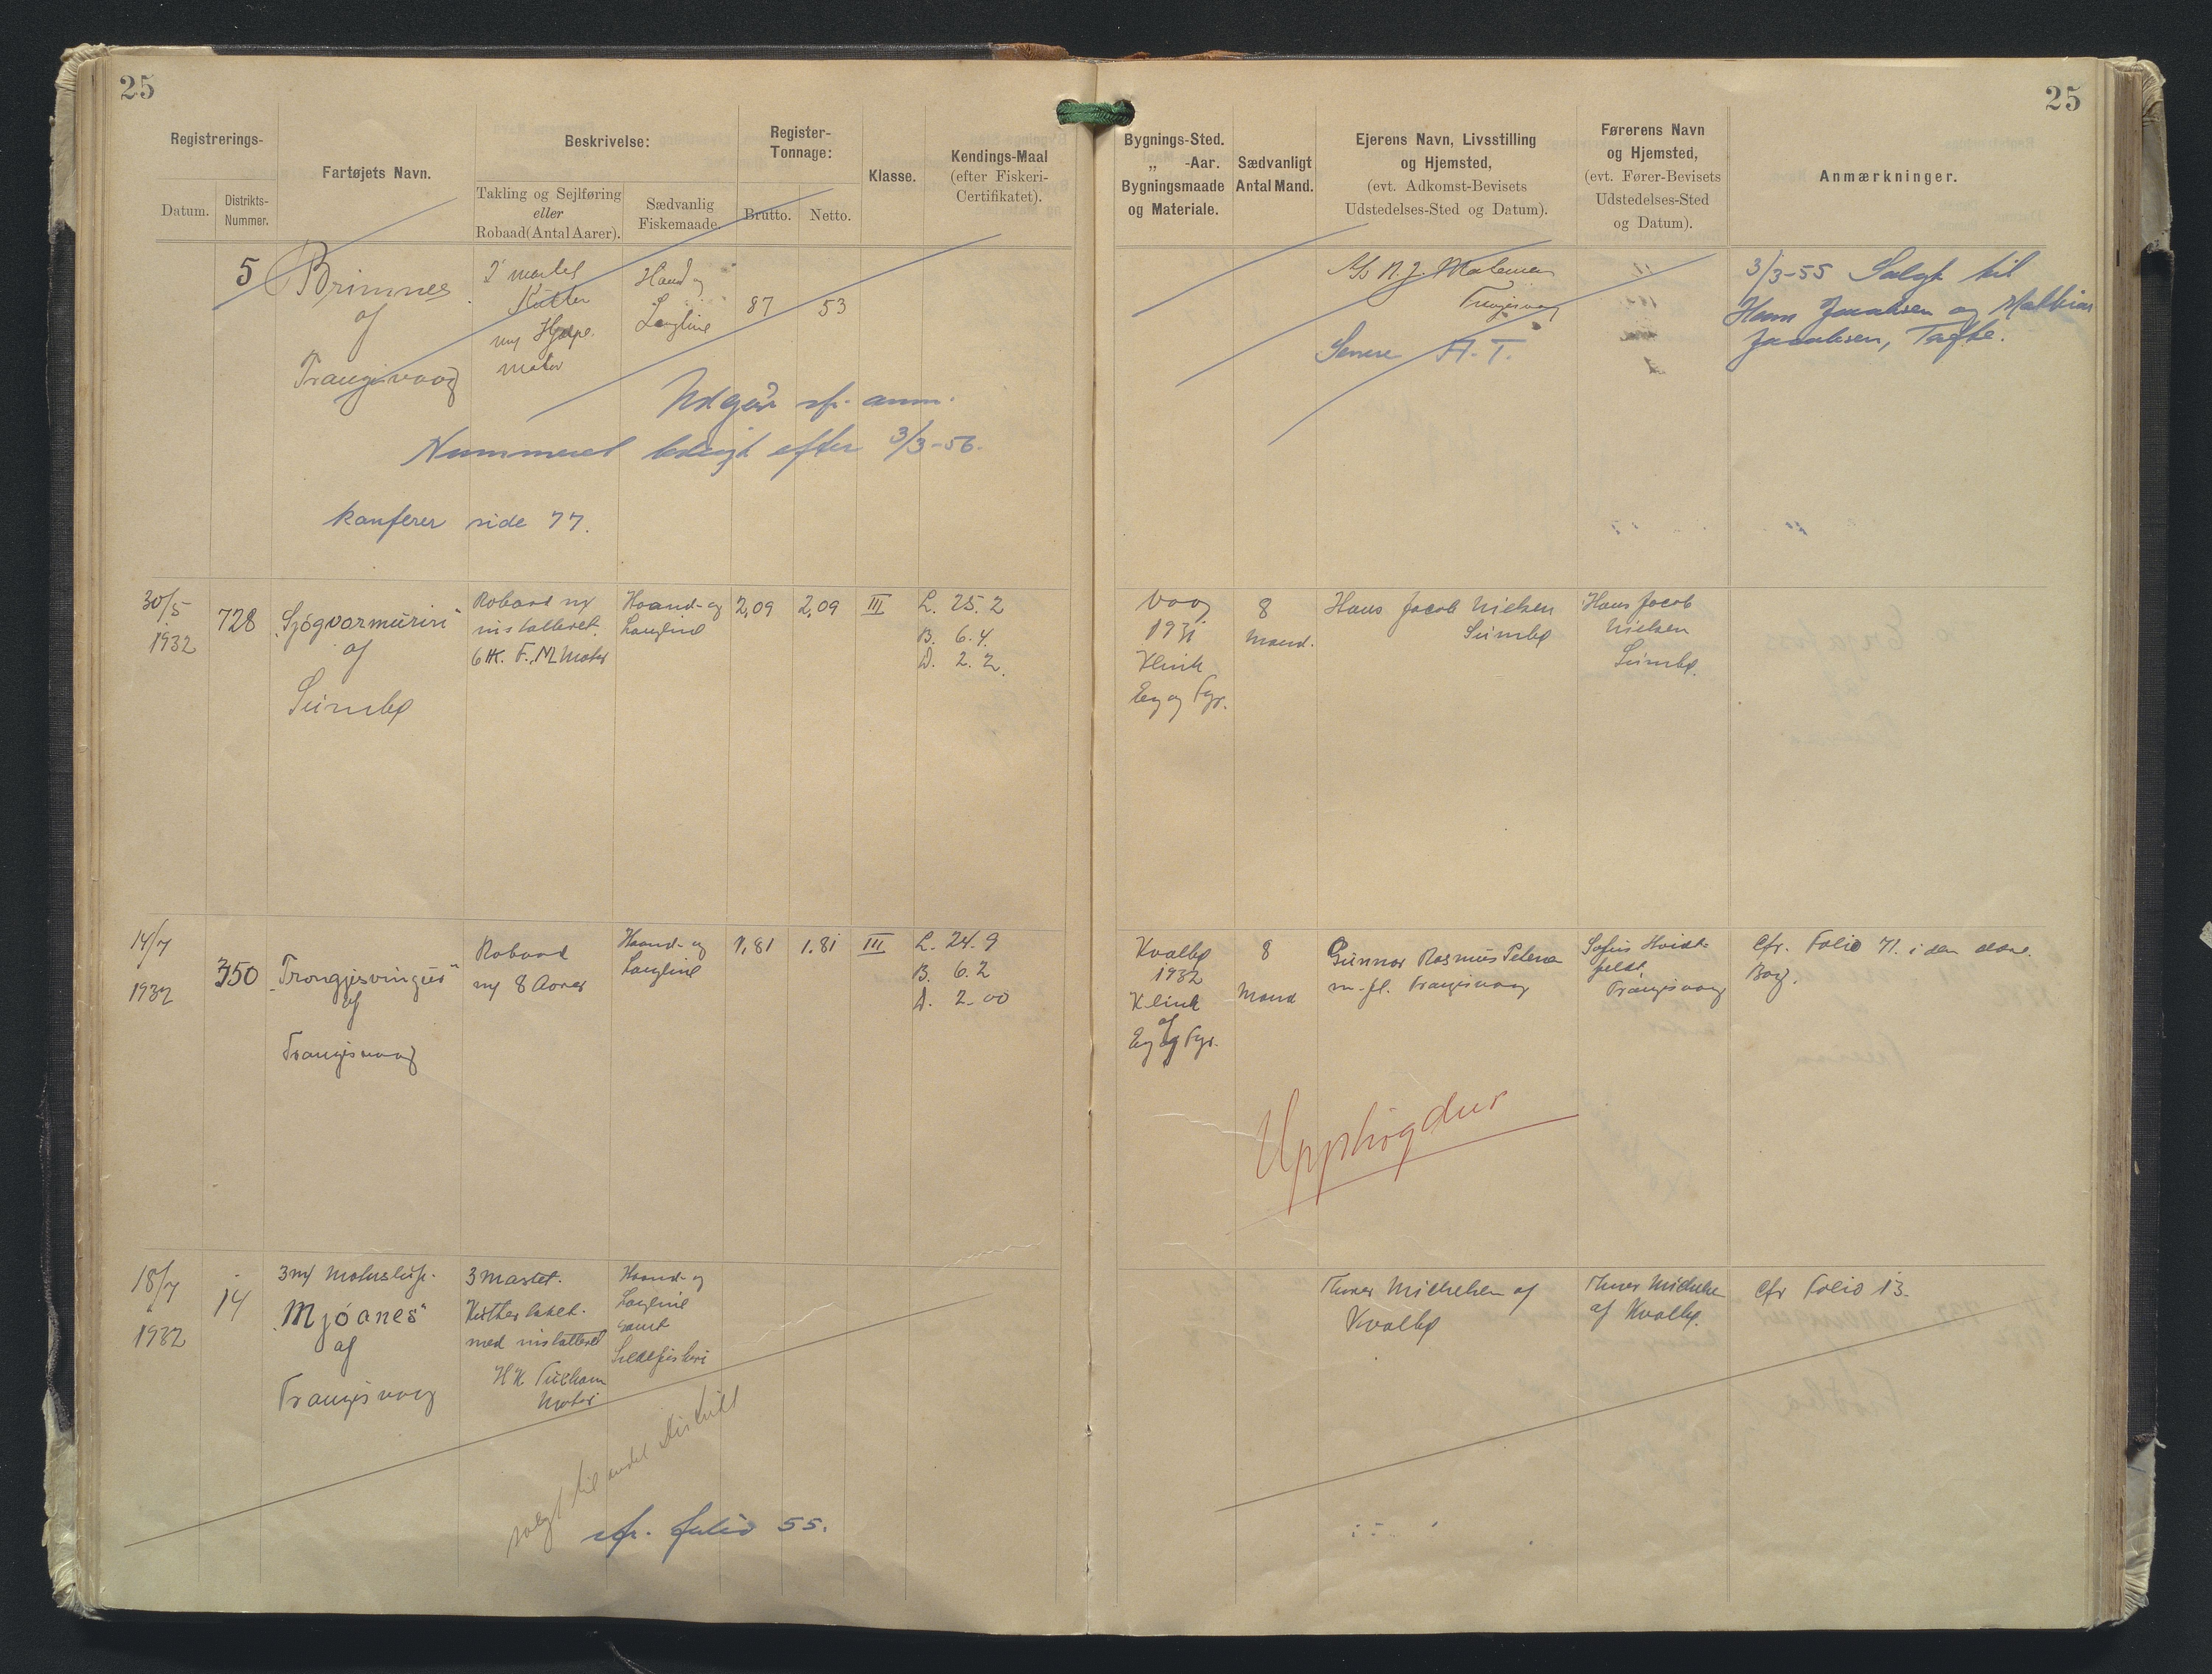 25
Registrerings-
Datum.
Distrikts-
Nummer.
Fartøjets Navn.
Beskrivelse:
Takling og Sejlføring
eller
Robaad (Antal Aarer).
Sædvanlig
Fiskemaade
Register-
Tonnage:
Brutto.
Netto.
Klasse.
Kendings-Maal
(efter Fiskeri-
Certifikatet).
5
Brimnes
af
Trangisvaag
2 mastet
Kutter
m/ Hjælpe
motor
Haand og
Langline
87
53
Udgår cfr. anm.
Nummeret ledigt efter 3/3-56.
konferer side 77.
30/5
1932
728
"Sjøgvarmurin"
af
Sumbø
Robaad m/
installeret
6 HK. F.M. Motor
Haand- og
Langline
2,09
2,09
III
L. 25.2
B. 6.4.
D. 2.2.
14/7
1932
350
"Trongjisvingur"
af
Trangisvaag
Robaad
m/ 8 Aarer
Haand- og
Langline
1,81
1.81
III
L. 24.9
B. 6.2
D. 2.00
18/7
1932
14
3m/ Motorslup.
"Mjóanes"
af
Trangisvaag
3 Mastet.
Kuttertaklet.
med installeret
HK Tuxham
Motor
Haand- og
Langline
samt
Sildefiskeri
solgt til andet Distrikt
cfr. folio 55.
25
Bygnings-Sted.
„ -Aar.
Bygningsmaade
og Materiale.
Sædvanligt
Antal Mand.
Ejerens Navn, Livsstilling
og Hjemsted,
(evt. Adkomst-Bevisets
Udstedelses-Sted og Datum).
Førerens Navn
og Hjemsted,
(evt. Fører-Bevisets
Udstedelses-Sted
og Datum).
Anmærkninger.
A/S N. J. Mortensen
Trangisvaag
Senere A. T.
3/3-55 Solgt til
Hans Jacobsen og Mathias
Jacobsen,
Vaag
1931
Klink
Eg og Fyr.
8
Mand.
Hans Jacob Nielsen
Sumbø
Hans Jacob
Nielsen
Sumbø.
Kvalbø
1932
Klink
af
Eg og Fyr.
8
Mand
Gunnar Rasmus Petersen
m. fl. Trangisvaag
Sofus Hvidt-
feldt,
Trangisvaag
Cfr. Folio 71. i den
Bog.
Upphøgdur
Thomas Michelsen af
Kvalbø
Thomas Michelsen
af Kvalbø.
Cfr Folio 13.